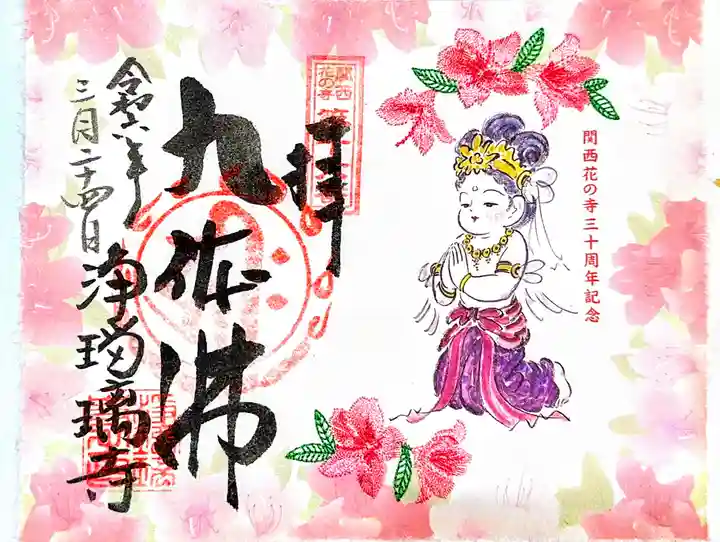 関西花の寺三十周年記念
奉拝
関西
花の寺
九体佛
令和六年
三月二十四日
浄瑠璃寺